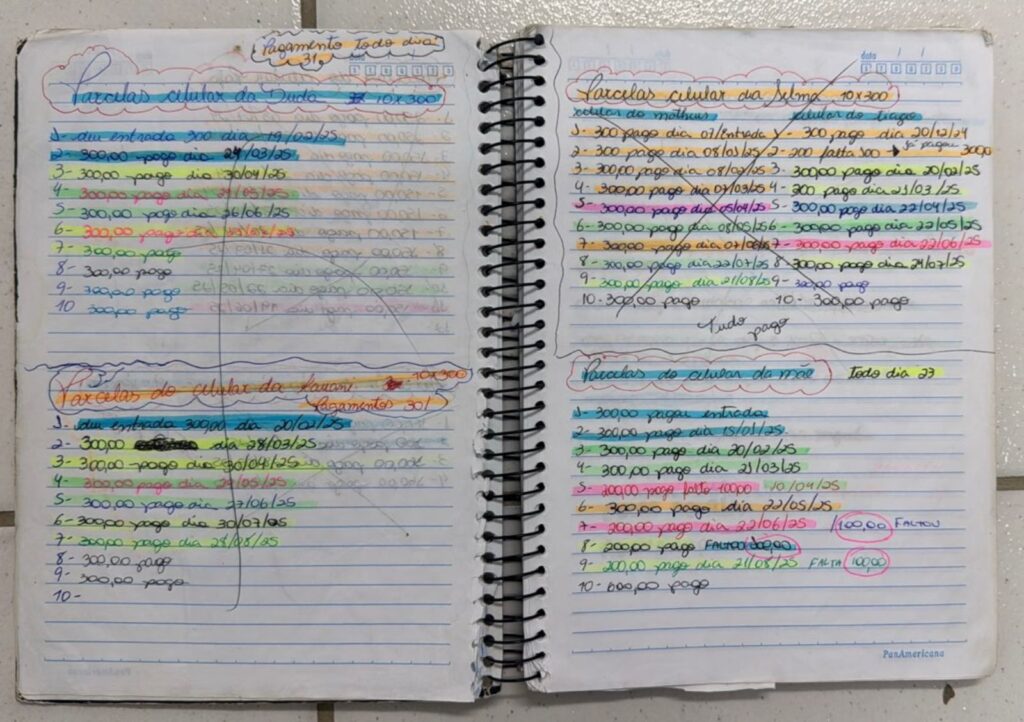 Pagamento todo dia
31.
Parcelas celular da Duda 10x300
1- deu entrada 300 dia 19/02/25
2- 300,00 pago dia 24/03/25
3- 300,00 pago dia 30/04/25
4- 300,00 pago dia 29/05/25
5- 300,00 pago dia 26/06/25
6- 300,00 pago dia
7- 300,00 pago
8- 300,00 pago
9- 300,00 pago
10 300,00 pago
Parcelas do celular da 10x300
Pagamentos 30/
1- deu entrada 300,00 dia 20/02/25
2- 300,00 dia 28/03/25
3- 300,00 pago dia 30/04/25
4- 300,00 pago dia 29/05/25
5- 300,00 pago dia 27/06/25
6- 300,00 pago dia 30/07/25
7- 300,00 pago dia 28/08/25
8- 300,00 pago
9- 300,00 pago
10-
data / /
Parcelas celular da Selma 10x300
celular do matheus
1- 300 pago dia 07/entrada
2- 300 pago dia 08/01/25
3- 300,00 pago dia 08/02/25
4- 300,00 pago dia 07/03/25
5- 300,00 pago dia 05/04/25
6- 300,00 pago dia 08/05/25
7- 300,00 pago dia 07/06/25
8- 300,00 pago dia 22/07/25
9- 300,00 pago dia 21/08/25
10- 300,00 pago
celular do tiago
1- 300 pago dia 20/12/24
2- 200 falta 100 → já pagou 300,00
3- 300,00 pago dia 20/02/25
4- 300 pago dia 21/03/25
5- 300,00 pago dia 22/04/25
6- 300,00 pago dia 22/05/25
7- 300,00 pago dia 22/06/25
8- 300,00 pago dia 24/07/25
9- 300,00 pago
10- 300,00 pago
Tudo pago
Parcelas do celular da mãe todo dia 23
1- 300,00 pagou entrada
2- 300,00 pago dia 15/01/25
3- 300,00 pago dia 20/02/25
4- 300,00 pago dia 21/03/25
5- 200,00 pago falta 100,00 10/04/25
6- 300,00 pago dia 22/05/25
7- 200,00 pago dia 22/06/25 /100,00 FALTOU
8- 200,00 pago FALTOU 100,00
9- 200,00 pago dia 21/08/25 FALTA 100,00
10- 600,00 pago
PanAmericana